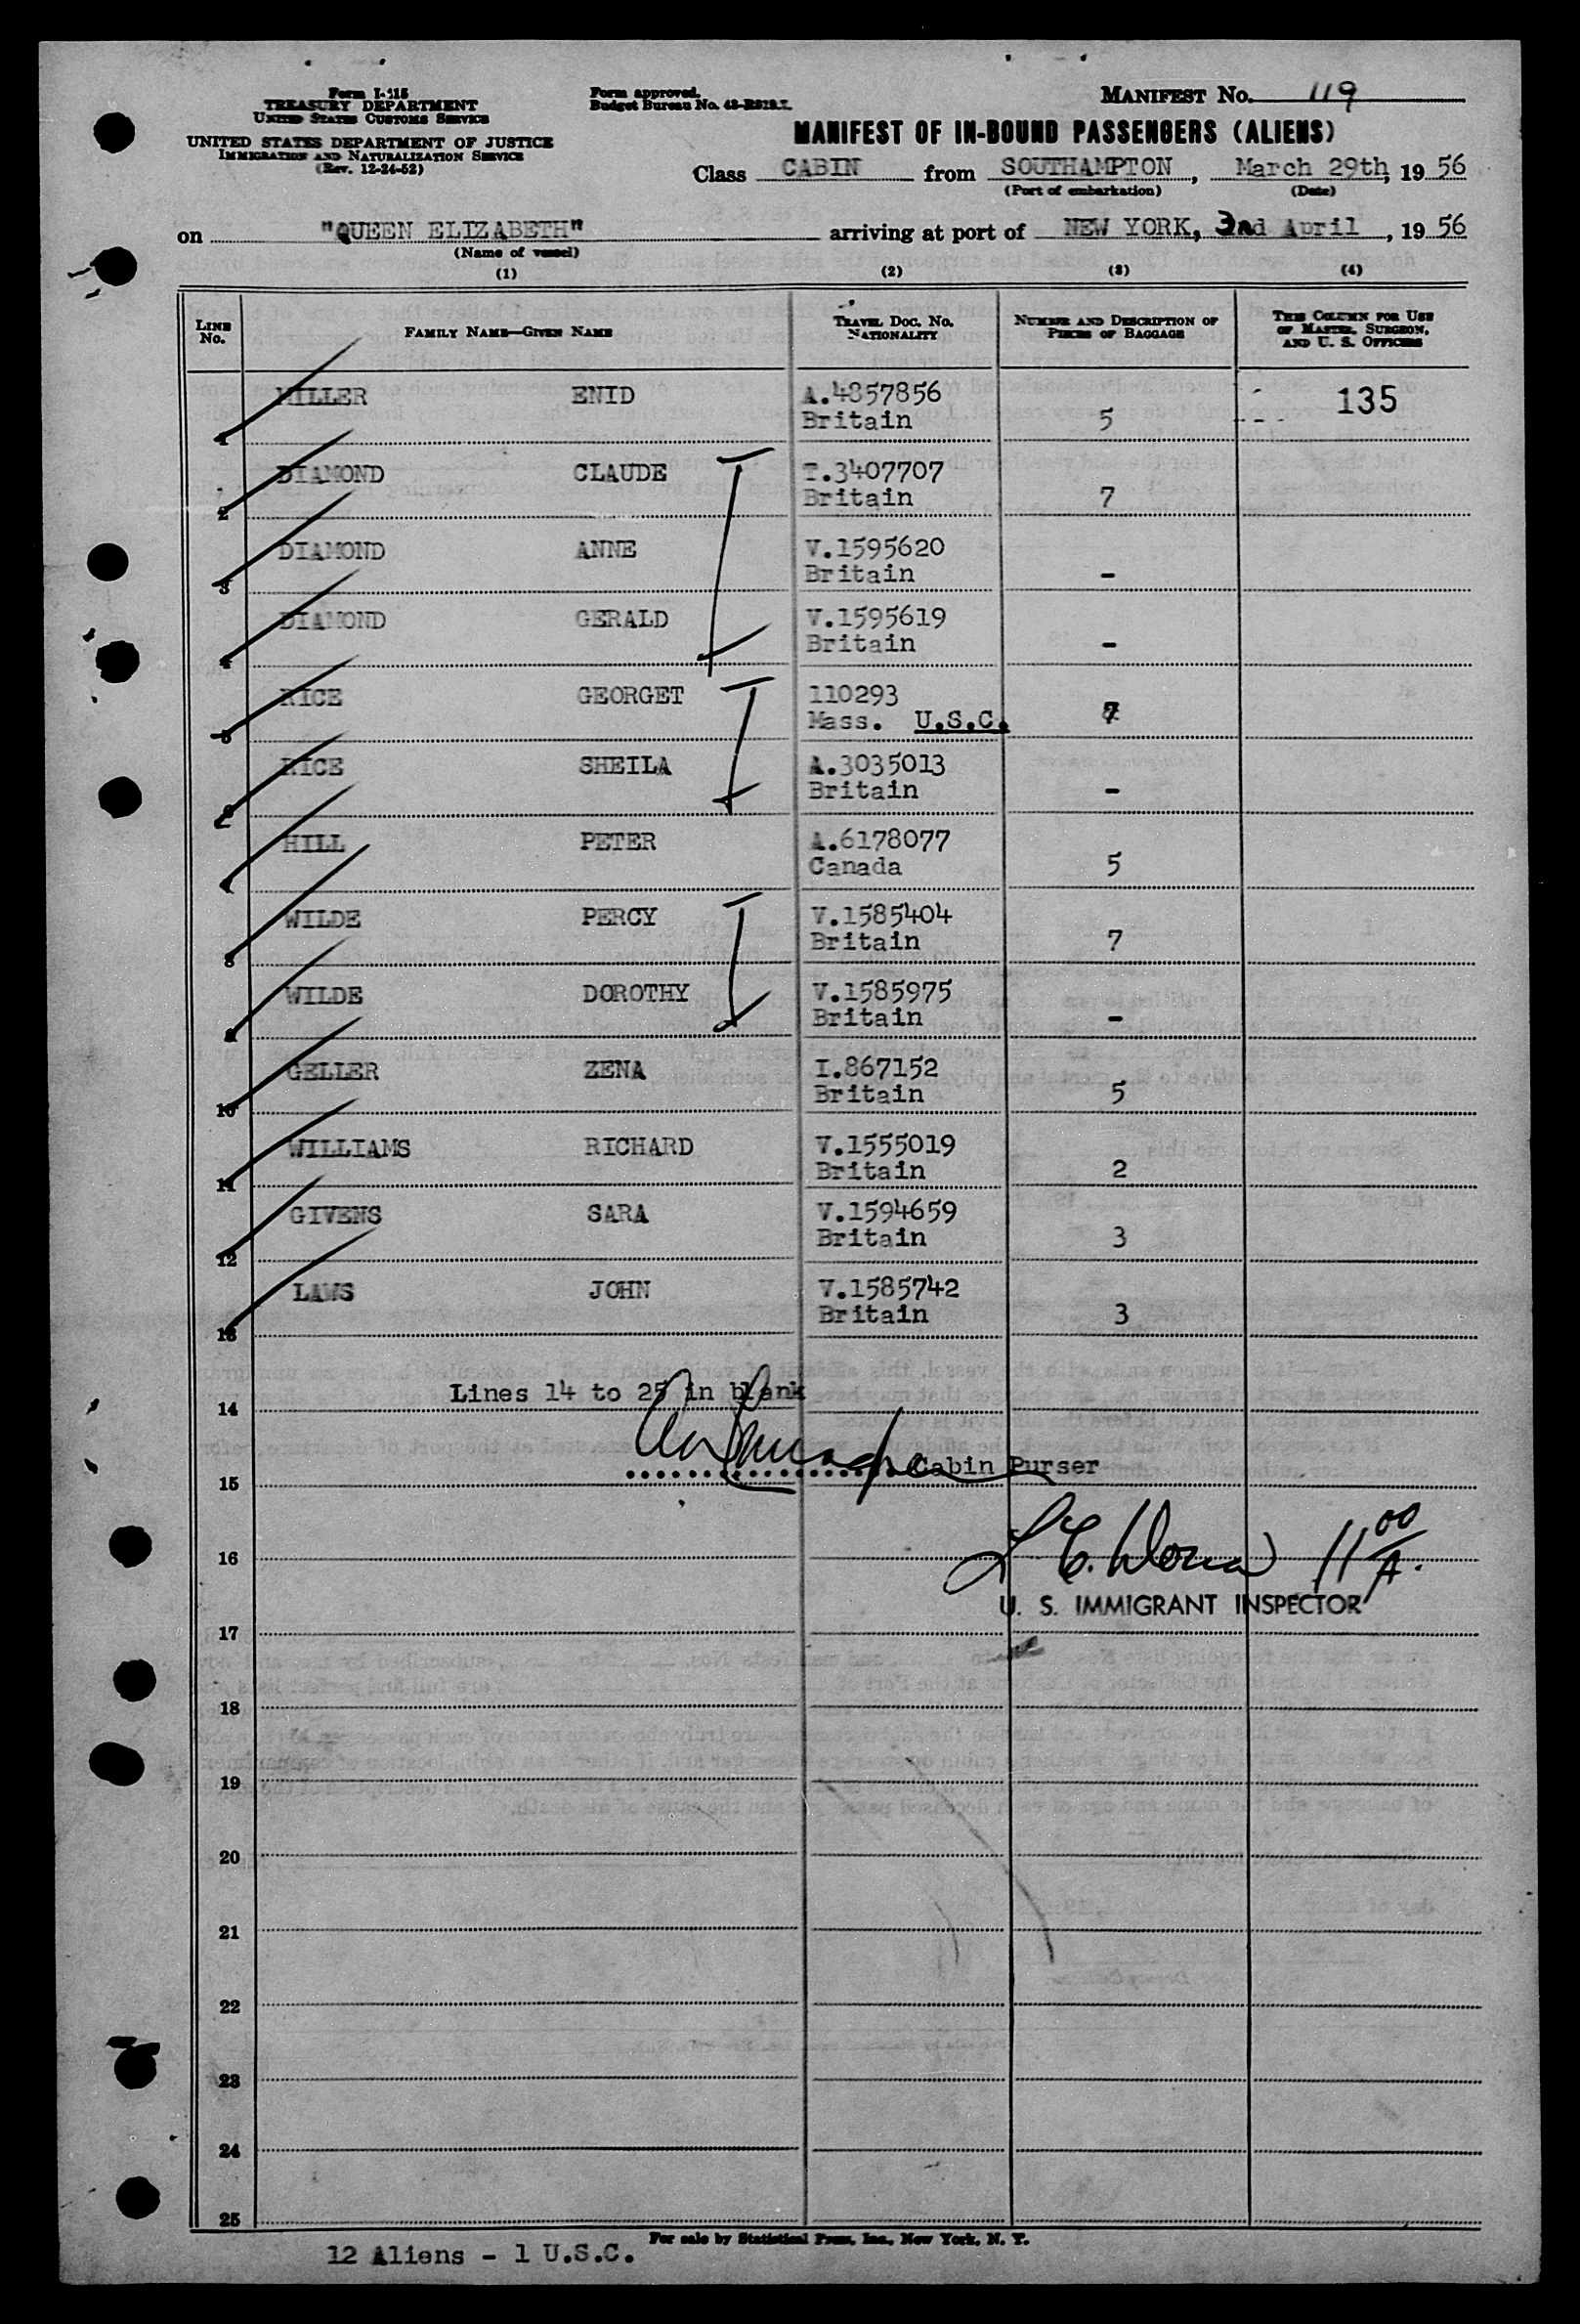 Form I-415
TREASURY DEPARTMENT
UNITED STATES CUSTOMS SERVICE
UNITED STATES DEPARTMENT OF JUSTICE
IMMIGRATION AND NATURALIZATION SERVICE
(Rev. 12-24-52)
Form approved.
Budget Bureau No.
MANIFEST No. 119
MANIFEST OF IN-BOUND PASSENGERS (ALIENS)
Class CABIN from SOUTHAMPTON, March 29th, 19 56
(Port of embarkation) (Date)
on "QUEEN ELIZABETH" arriving at port of NEW YORK, 3nd April, 19 56
(Name of vessel)
(1) (2) (3) (4)
LINE No. FAMILY NAME—GIVEN NAME TRAVEL DOC. NO. NATIONALITY NUMBER AND DESCRIPTION OF PIECES OF BAGGAGE THIS COLUMN FOR USE OF MASTER, SURGEON, AND U. S. OFFICERS
1 MILLER ENID A.4857856 135
Britain 5
2 DIAMOND CLAUDE T.3407707
Britain 7
3 DIAMOND ANNE V.1595620
Britain -
4 DIAMOND GERALD V.1595619
Britain -
5 RICE GEORGET 110293
Mass. U.S.C. 7
6 RICE SHEILA A.3035013
Britain -
7 HILL PETER A.6178077
Canada 5
8 WILDE PERCY V.1585404
Britain 7
9 WILDE DOROTHY V.1585975
Britain -
10 GELLER ZENA I.867152
Britain 5
11 WILLIAMS RICHARD V.1555019
Britain 2
12 GIVENS SARA V.1594659
Britain 3
13 LAWS JOHN V.1585742
Britain 3
Lines 14 to 25 in blank
14
Cabin Purser
15
16 11 00/A.
U. S. IMMIGRANT INSPECTOR
17
18
19
20
21
22
23
24
25
For sale by Statistical Press, Inc., New York, N. Y.
12 Aliens - 1 U.S.C.